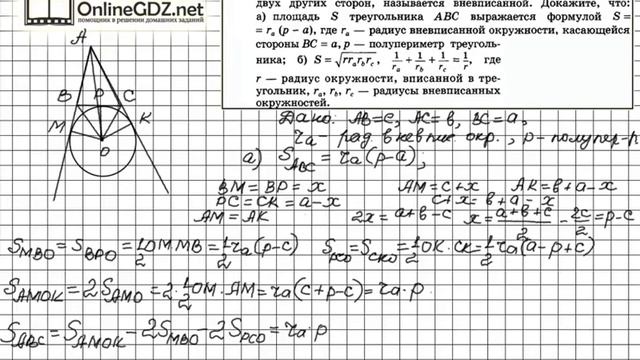 OnlineGDZ.net
помощник в решении домашних заданий
двух других сторон, называется вневписанной. Докажите, что:
а) площадь S треугольника ABC выражается формулой S =
= rₐ (p − a), где rₐ — радиус вневписанной окружности, касающейся
стороны BC = a, p — полупериметр треуголь-
ника; б) S = √(r rₐ r_b r_c), 1/rₐ + 1/r_b + 1/r_c = 1/r, где
r — радиус окружности, вписанной в тре-
угольник, rₐ, r_b, r_c — радиусы вневписанных
окружностей.
A
B P C
M K
O
Дано: AB=c, AC=b, BC=a,
rₐ - рад. вневпис окр., p - полупер-р
а) S_ABC = rₐ(p-a),
BM = BP = x AM = c+x AK = b+a-x
PC = CK = a-x c+x = b+a-x
AM = AK 2x = a+b-c x = (a+b+c)/2 - 2c/2 = p-c
S_MBO = S_BPO = 1/2 OM·MB = 1/2 rₐ(p-c) S_PCO = S_CKO = 1/2 OK·CK = 1/2 rₐ(a-p+c)
S_AMOK = 2S_AMO = 2·1/2 OM·AM = rₐ(c+p-c) = rₐ·p
S_ABC = S_AMOK - 2S_MBO - 2S_PCO = rₐ·p